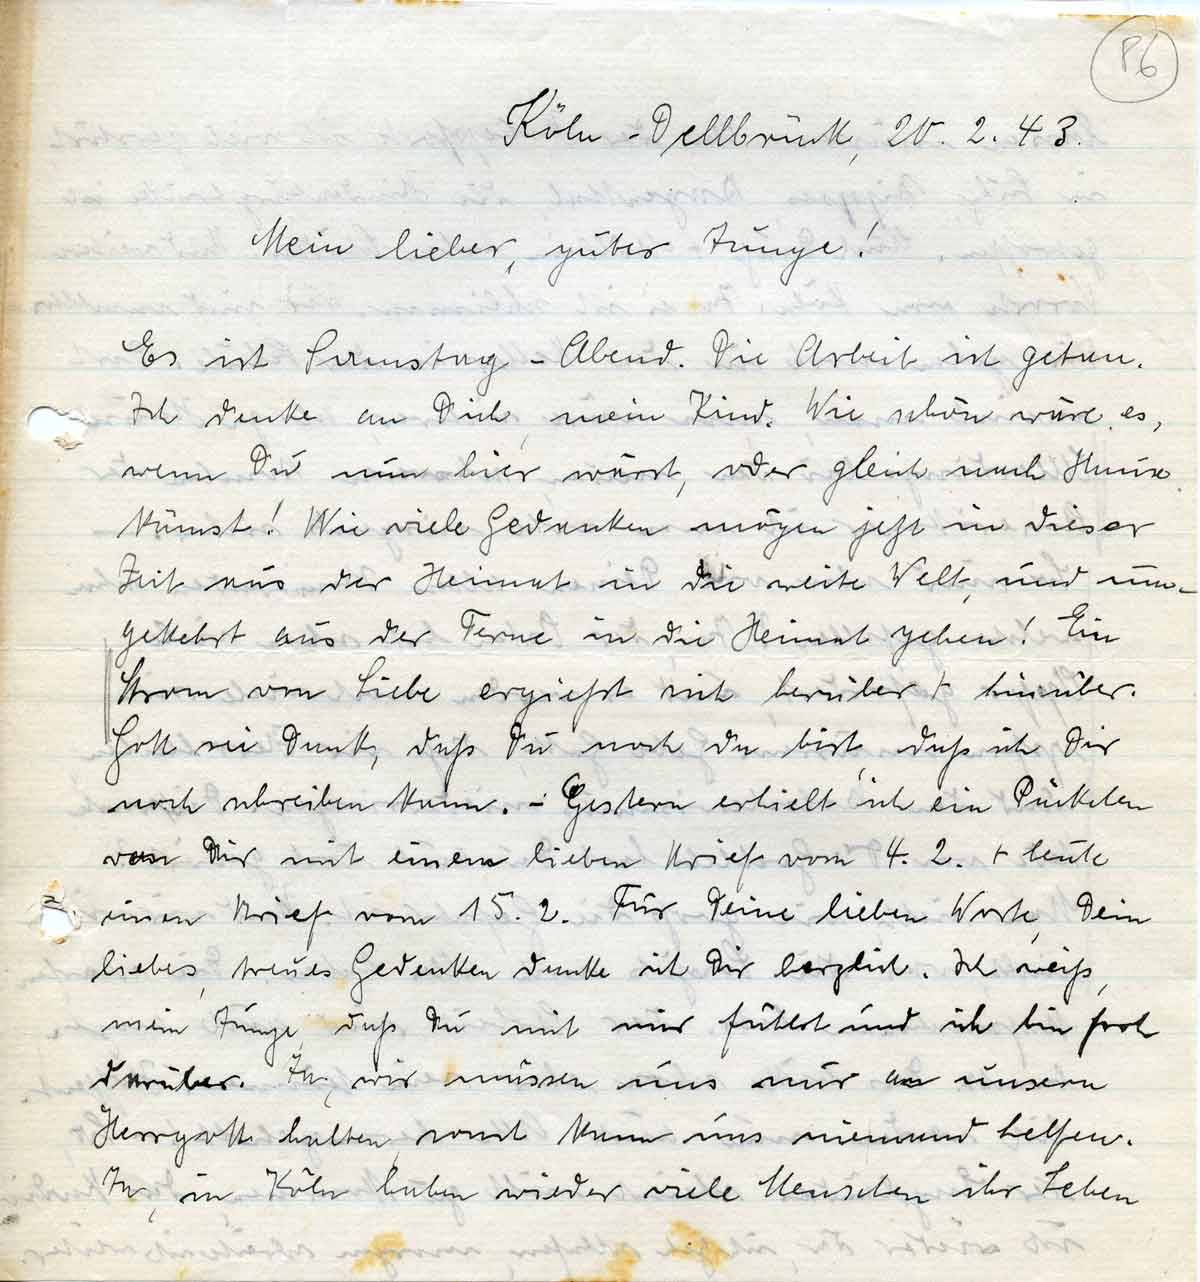 P6
Köln-Dellbrück, 20. 2. 43.
Mein lieber, guter Junge!
Es ist Samstag-Abend. Die Arbeit ist getan.
Ich denke an Dich, mein Kind. Wie schön wäre es,
wenn Du nun hier wärst, oder gleich nach Hause
kämst! Wie viele Gedanken mögen jetzt in dieser
Zeit aus der Heimat in die weite Welt, und um-
gekehrt aus der Ferne in die Heimat gehen! Ein
Strom von Liebe ergießt sich herüber + hinüber.
Gott sei Dank, daß Du noch da bist, daß ich Dir
noch schreiben kann. - Gestern erhielt ich ein Päckchen
von Dir mit einem lieben Brief vom 4. 2. + heute
einen Brief vom 15. 2. Für Deine lieben Worte, Dein
liebes, treues Gedenken danke ich Dir herzlich. Ich weiß,
mein Junge, daß Du mit mir fühlst und ich bin froh
darüber. Ja, wir müssen uns nur an unsern
Herrgott halten, sonst kann uns niemand helfen.
Ja, in Köln haben wieder viele Menschen ihr Leben